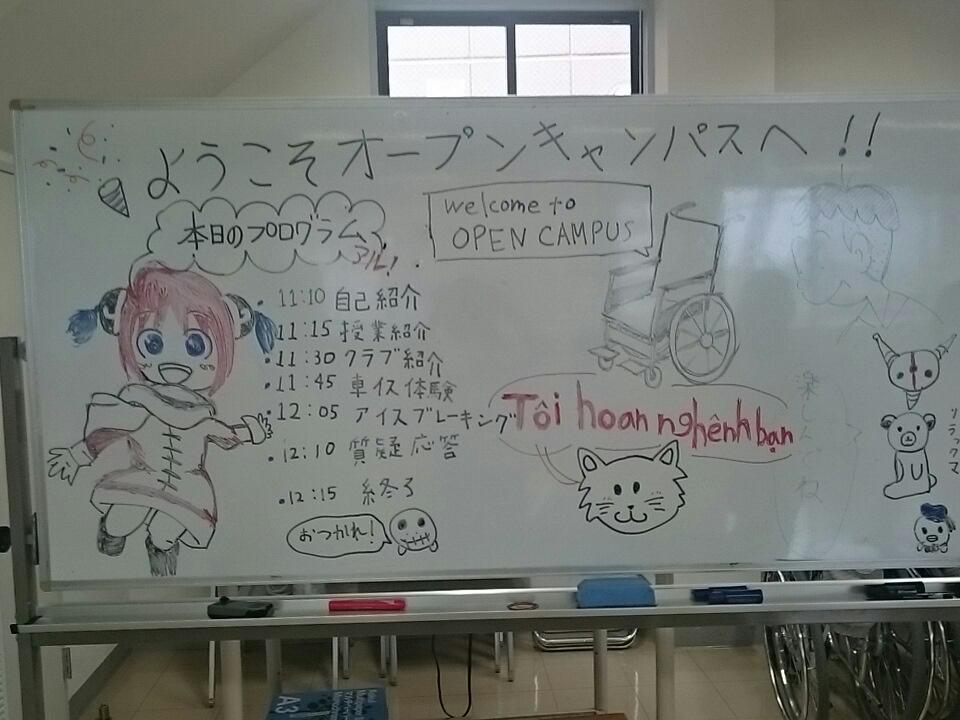 ようこそオープンキャンパスへ!!
本日のプログラム
アル!
welcome to
OPEN CAMPUS
・11:10 自己紹介
・11:15 授業紹介
・11:30 クラブ紹介
・11:45 車イス体験
・12:05 アイスブレーキング
・12:10 質疑応答
・12:15 終了
Tôi hoan nghênh bạn
おつかれ!
楽しんでね
リラックマ
A3